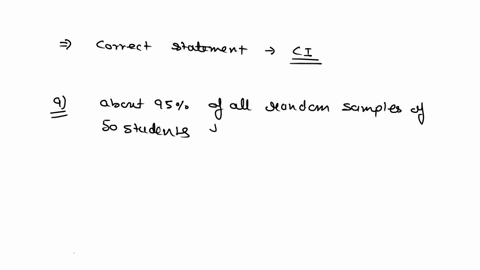 ⇒ correct statement → CI
a) about 95% of all random samples of
50 students